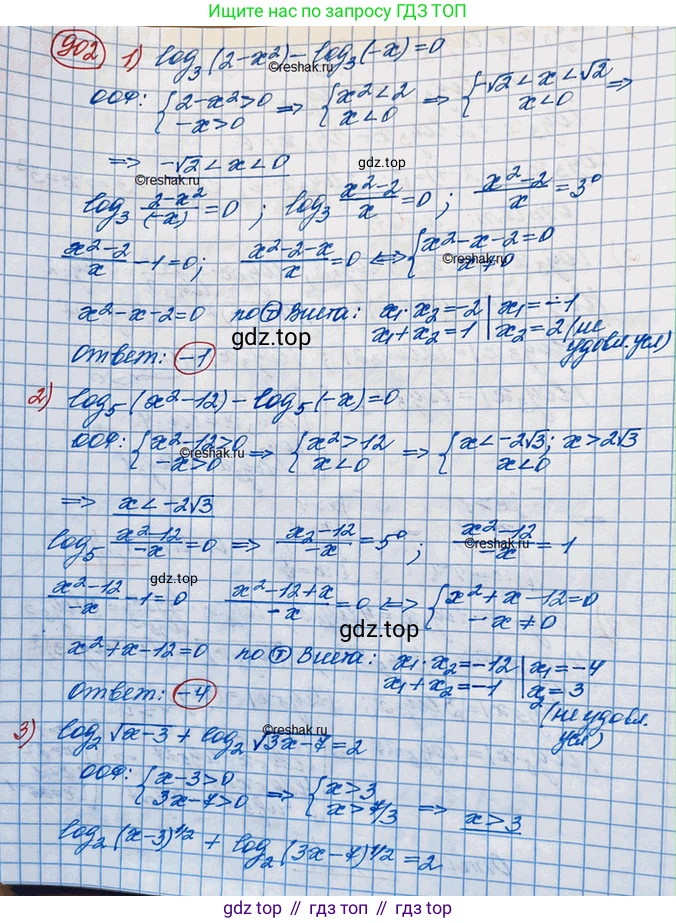 Ищите решение по запросу ГДЗ ТОП
902 1) log₃(2-x²)-log₃(-x)=0
©reshak.ru
ООФ: {2-x²>0 -x>0 => {x²<2 x<0 => {-√2<x<√2 x<0 =>
=> -√2<x<0
gdz.top
©reshak.ru
log₃ (2-x²)/(-x)=0; log₃ (x²-2)/x=0; (x²-2)/x=3⁰
(x²-2)/x-1=0; (x²-2-x)/x=0 <=> {x²-x-2=0 x≠0
©reshak.ru
x²-x-2=0 по Т Виета: x₁·x₂=-2 | x₁=-1
x₁+x₂=1 | x₂=2 (не удовл. усл)
gdz.top
Ответ: -1
2) log₅(x²-12)-log₅(-x)=0
ООФ: {x²-12>0 -x>0 => {x²>12 x<0 => {x<-2√3; x>2√3 x<0
©reshak.ru
=> x<-2√3
log₅ (x²-12)/-x=0 => (x₂-12)/-x=5⁰; (x²-12)/-x=1
©reshak.ru
gdz.top
(x²-12)/-x-1=0 (x²-12+x)/-x=0 <=> {x²+x-12=0 -x≠0
gdz.top
x²+x-12=0 по Т Виета: x₁·x₂=-12 | x₁=-4
x₁+x₂=-1 | x₂=3
Ответ: -4 (не удовл. усл)
3) log₂√x-3+log₂√3x-7=2
©reshak.ru
ООФ: {x-3>0 3x-7>0 => {x>3 x>7/3 => x>3
log₂(x-3)^1/2+log₂(3x-7)^1/2=2
gdz.top // гдз.топ // gdz.top